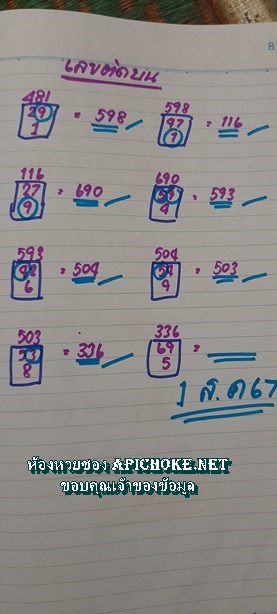 8
เลขตัดบน
481 598
29 = 598 97 = 116
1 7
116 690
27 = 690 = 593
9 4
593 504
= 504 = 503
6 9
503 336
53 = 336 69 =
8 5
1 ส.ค 67
ห้องหวยซอง APICHOKE.NET
ขอบคุณเจ้าของข้อมูล